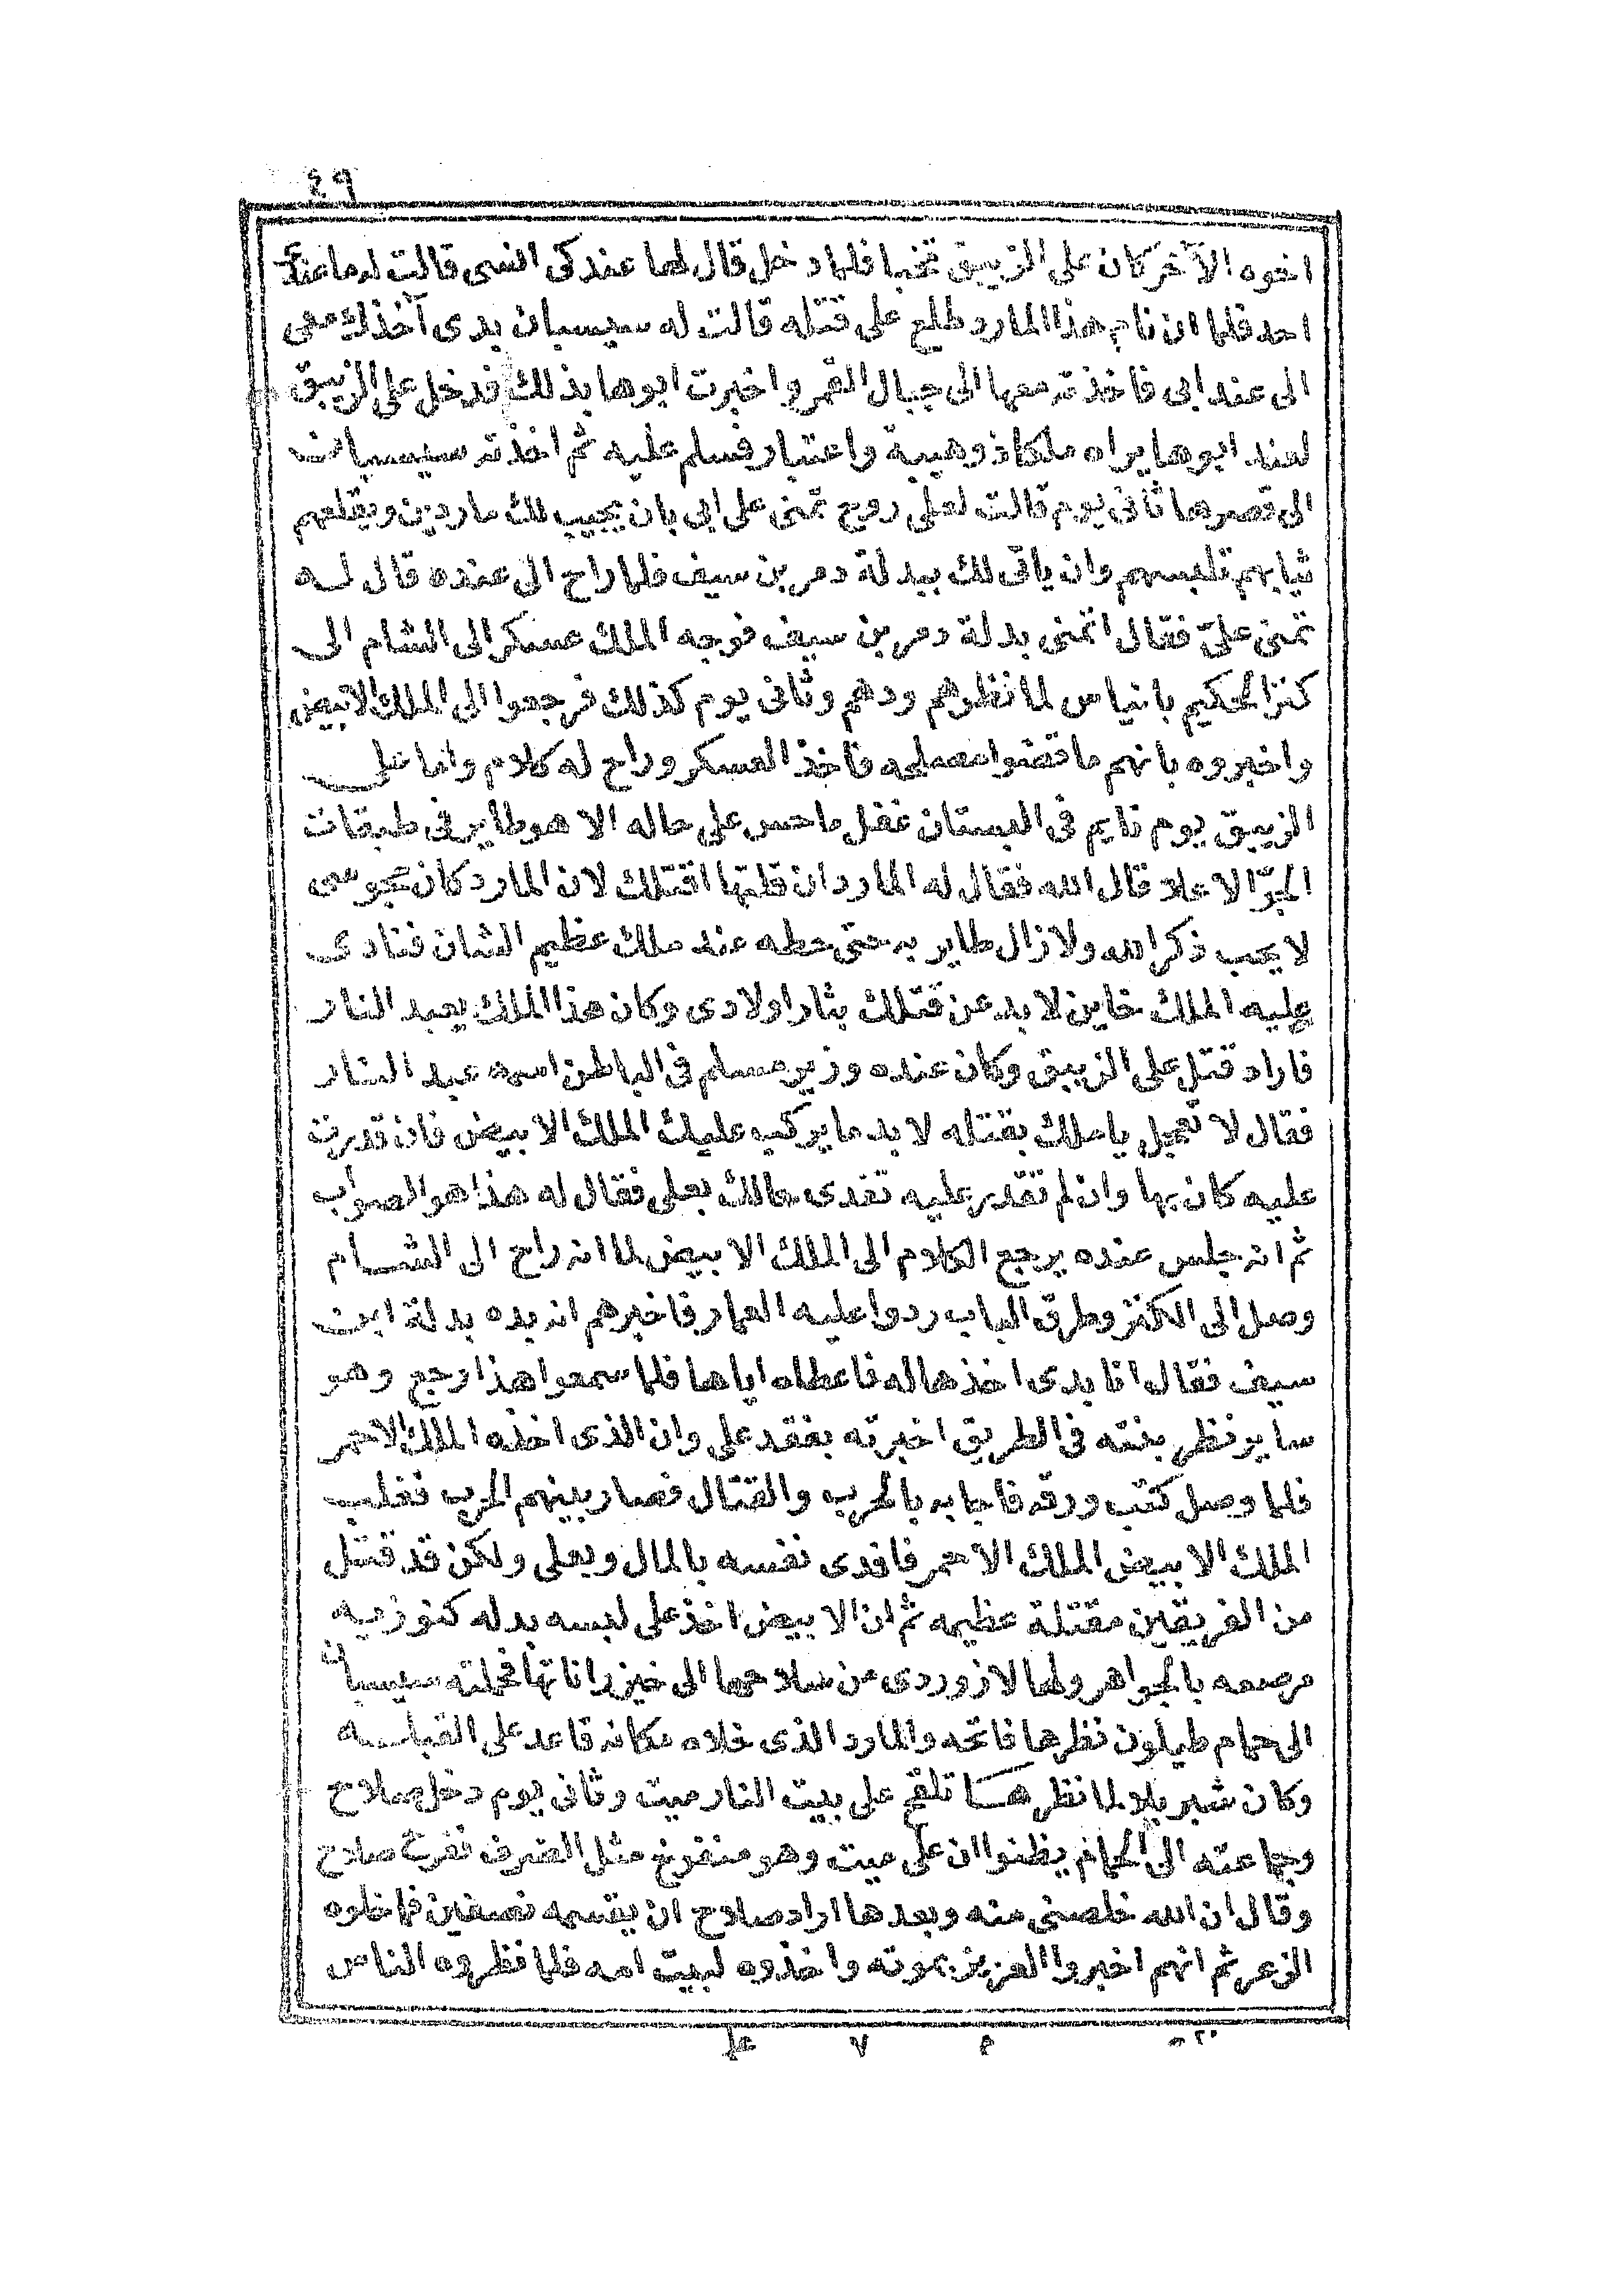 ٤٩
اخوه الآخر كان على الزيبق تخبا فلما دخل قال لها عندكى انسى قالت له ما عندى
احد فلما ان نام هذا المارد طلع على قتله قالت له سيسبان بدى آخذك معى
الى عند ابى فاخذته معها الى جبال القمر واخبرت ابوها بذلك فدخل على الزيبق
لعند ابوها يراه ملكا ذو هيبة واعتبار فسلم عليه ثم اخذته سيسبان
الى قصرها ثانى يوم قالت لعلى روح تمنى على ابى بان يجيب لك ماردين ويقلعهم
ثيابهم تلبسهم وان ياتى لك ببدلة دمر بن سيف فلما راح الى عنده قال له
تمنى علىّ فقال اتمنى بدلة دمر بن سيف فوجه الملك عسكر الى الشام الى
كنز الحكيم بانياس لما نظروهم ودهم وثانى يوم كذلك فرجعوا الى الملك الابيض
واخبروه بانهم ما قضوا مصلحه فاخذ العسكر وراح له كلام واما على
الزيبق يوم نايم فى البستان غفل ما حس على حاله الا هو طاير فى طبقات
الجوّ الاعلا قال الله فقال له المارد ان قلتها اقتلك لان المارد كان مجوسى
لا يحب ذكر الله ولا زال طاير به حتى حطه عند ملك عظيم الشان فنادى
عليه الملك خاين لا بد عن قتلك بثار اولادى وكان هذا الملك يعبد النار
فاراد قتل على الزيبق وكان عنده وزير مسلم فى الباطن اسمه عبد النار
فقال لا تعجل يا ملك بقتله لا بد ما يركب عليك الملك الابيض فان قدرت
عليه كان بها وان لم تقدر عليه تفدى حالك بعلى فقال له هذا هو الصواب
ثم انه جلس عنده يرجع الكلام الى الملك الابيض لما انه راح الى الشام
وصل الى الكنز وطرق الباب ردوا عليه العمار فاخبرهم انه بده بدلة ابن
سيف فقال انا بدى اخذها له فاعطاه اياها فلما سمعوا هذا رجع وهو
ساير نظر بنته فى الطريق اخبرته بفقد على وان الذى اخذه الملك الاحمر
فلما وصل كتب ورقه فاجابه بالحرب والقتال فصار بينهم الحرب فغلب
الملك الابيض الملك الاحمر فافدى نفسه بالمال وبعلى ولكن قد قتل
من الفريقين مقتلة عظيمه ثم ان الابيض اخذ على لبسه بدله كنوزيه
مرصعه بالجواهر ولها لازوردى من سلاحها الى خيزراناتها فحملته سيسبان
الى حمام طيلون نظرها فاتحه والمارد الذى خلاه مكانه قاعد على القبلـه
وكان شبر بلا لما نظرها تلقح على بيت النار ميت وثانى يوم دخل صلاح
وجماعته الى الحمام يظنوا ان على ميت وهو منفوخ مثل الضرف ففرح صلاح
وقال ان الله خلصنى منه وبعدها اراد صلاح ان يقسمه نصفين فما خلوه
الزعر ثم انهم اخبروا العزيز بموته واخذوه لبيت امه فلما نظروه الناس
م ٧ على